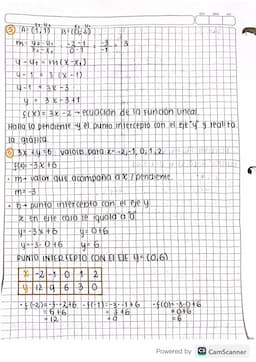 ⑤ A=(1,1) B=(0,-2)
m= y₂-y₁ / x₂-x₁ = -2-1 / 0-1 = -3 / -1 = 3
y-y₁ = m(x-x₁)
y-1 = 3 (x-1)
y-1 = 3x-3
y = 3x-3+1
f(x)= 3x-2 → ecuación de la función lineal
Halla la pendiente y el punto intercepto con el eje "y" y realiza
la gráfica.
3x+y=6. valores para x=-2,-1,0,1,2.
f(x)=-3x+6
• m→ valor que acompaña a x / pendiente.
m=-3
• b→ punto intercepto con el eje y
x en este caso se iguala a 0
y=-3x+6 y=0+6
y=-3·0+6 y=6
PUNTO INTERCEPTO CON EL EJE y=(0,6)
x -2 -1 0 1 2
y 12 9 6 3 0
• f(-2)=-3·-2+6 • f(-1)=-3·-1+6 • f(0)=-3·0+6
=6+6 =3+6 =0+6
=12 =6
Powered by CS CamScanner